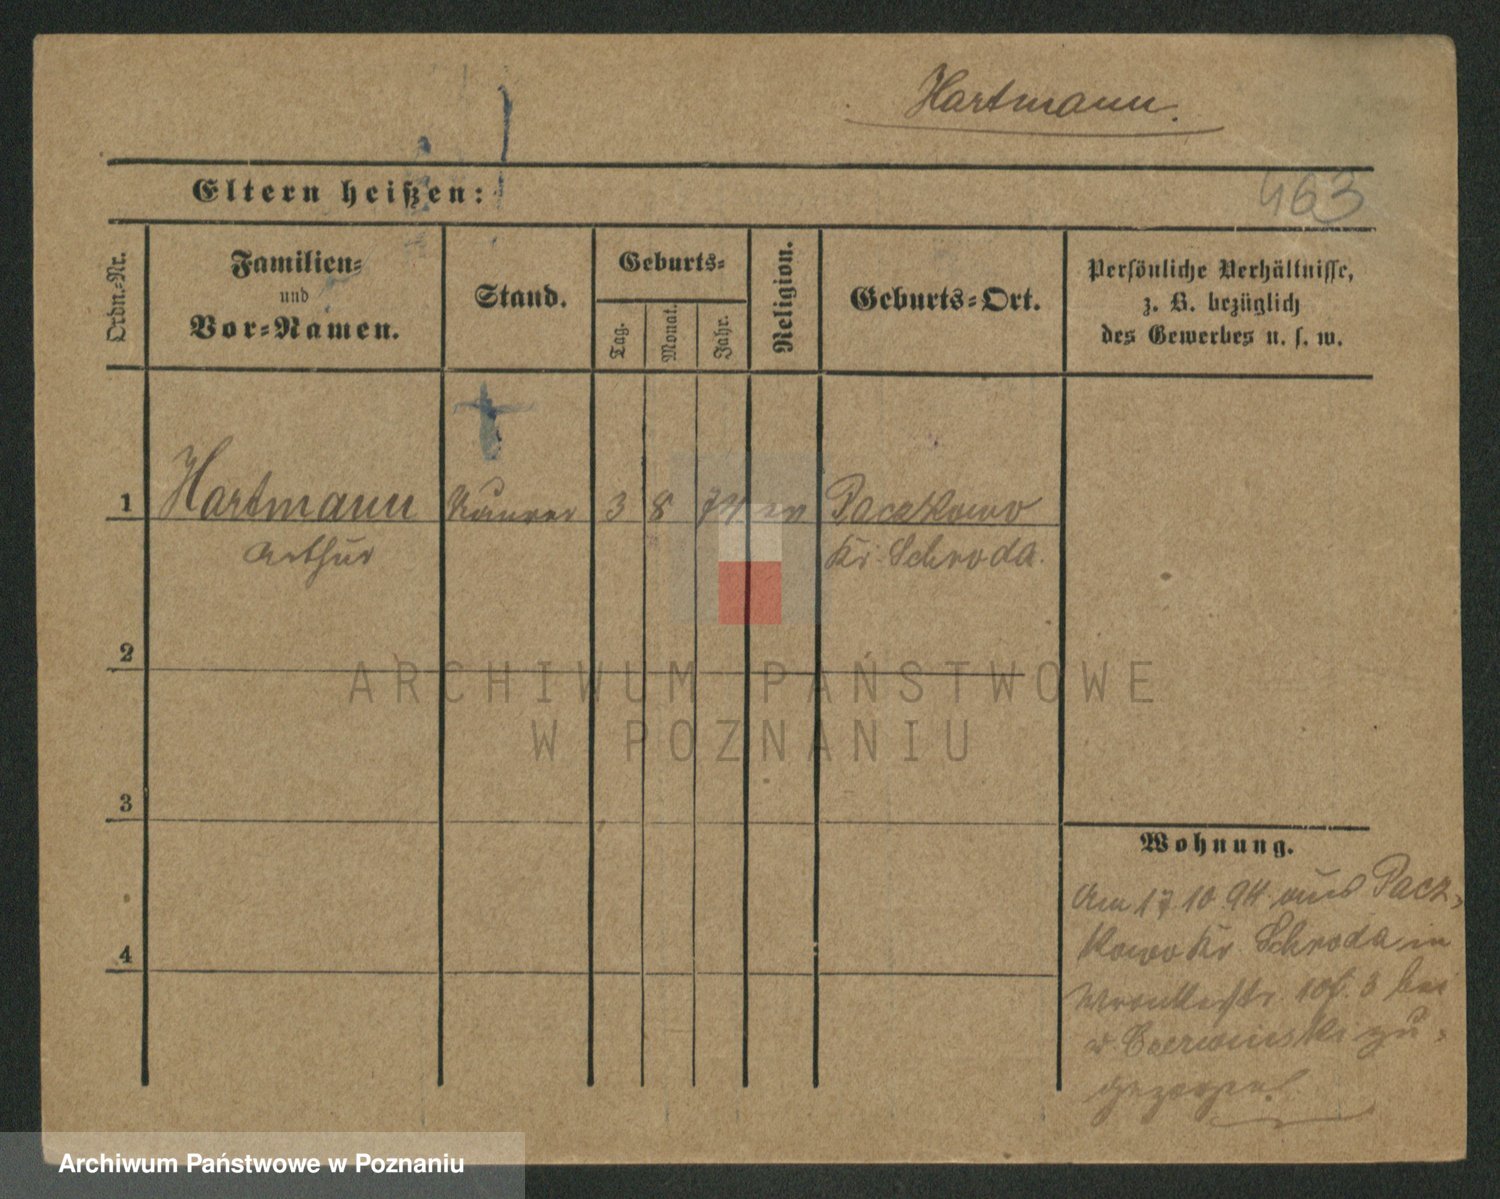 Hartmann.
Eltern heißen:
463
Ordn.-Nr.
Familien-
und
Vor-Namen.
Stand.
Geburts-
Tag.
Monat.
Jahr.
Religion.
Geburts-Ort.
Persönliche Verhältnisse,
z. B. bezüglich
des Gewerbes u. s. w.
1 Hartmann Maurer 3 8 74 ev Paczkowo
Arthur Kr. Schroda.
2
ARCHIWUM PAŃSTWOWE
W POZNANIU
3
Wohnung.
Am 17.10.94 aus Pacz-
kowo Kr. Schroda in
4
Wronkerstr. 10 3 bei
Czerwinski zu-
gezogen.
Archiwum Państwowe w Poznaniu